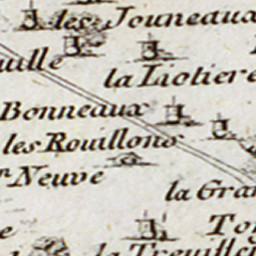 les Jouneaux
uille
la Liotiere
Bonneaux
les Rouillons
r Neuve
la Gran
To
e
la Treuille